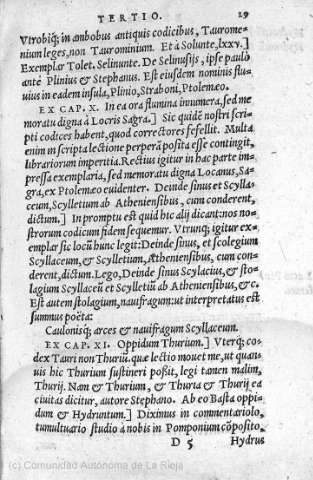 TERTIO. 29
Vtrobiq; in ambobus antiquis codicibus, Taurome-
nium leges, non Taurominium. Et à Solunte, lxxv.]
Exemplar Tolet. Selinunte. De Selinusijs, ipse paulò
antè Plinius & Stephanus. Est eiusdem nominis flu-
uius in eadem insula, Plinio, Straboni, Ptolemæo.
EX CAP. X. In ea ora flumina innumera, sed me-
moratu digna à Locris Sagra.] Sic quidē nostri scri-
pti codices habent, quod correctores fefellit. Multa
enim in scripta lectione perperā posita esse contingit,
librariorum imperitia. Rectius igitur in hac parte im-
pressa exemplaria, sed memoratu digna Locanus, Sa-
gra, ex Ptolemæo euidenter. Deinde sinus et Scylla-
ceum, Scylletium ab Atheniensibus, cum conderent,
dictum.] In promptu est quid hic alij dicant: nos no-
strorum codicum fidem sequemur. Vtrunq; igitur ex-
emplar sic locū hunc legit: Deinde sinus, et scolegium
Scyllaceum, & Scylletium, Atheniensibus, cum con-
derent, dictum. Lego, Deinde sinus Scylacius, & sto-
lagium Scyllaceū et Scylletiū ab Atheniensibus, &c.
Est autem stolagium, nauifragum: ut interpretatus est
summus poëta:
Caulonisq; arces & nauifragum Scyllaceum.
EX CAP. XI. Oppidum Thurium.] Vterq; co-
dex Tauri non Thuriū. quæ lectio mouet me, ut quan-
uis hic Thurium sustineri poßit, legi tamen malim,
Thurij. Nam & Thurium, & Thuria & Thurij ea
ciuitas dicitur, autore Stephano. Ab eo Basta oppi-
dum & Hydruntum.] Diximus in commentariolo,
tumultuario studio à nobis in Pomponium cōposito,
D 5 Hydrus
(c) Comunidad Autónoma de La Rioja